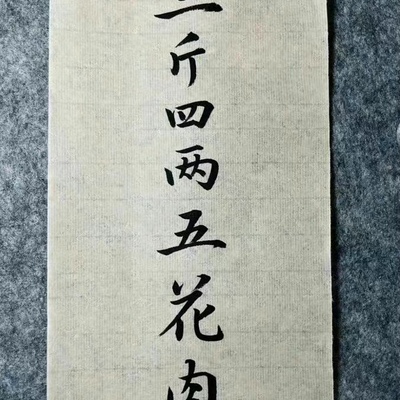 斤四两五花肉